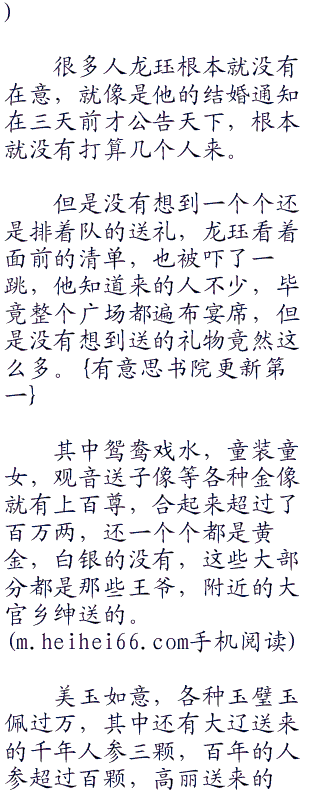 )
很多人龙珏根本就没有
在意，就像是他的结婚通知
在三天前才公告天下，根本
就没有打算几个人来。
但是没有想到一个个还
是排着队的送礼，龙珏看着
面前的清单，也被吓了一
跳，他知道来的人不少，毕
竟整个广场都遍布宴席，但
是没有想到送的礼物竟然这
么多。{有意思书院更新第
一}
其中鸳鸯戏水，童装童
女，观音送子像等各种金像
就有上百尊，合起来超过了
百万两，还一个个都是黄
金，白银的没有，这些大部
分都是那些王爷，附近的大
官乡绅送的。
(m.heihei66.com手机阅读)
美玉如意，各种玉璧玉
佩过万，其中还有大辽送来
的千年人参三颗，百年的人
参超过百颗，高丽送来的